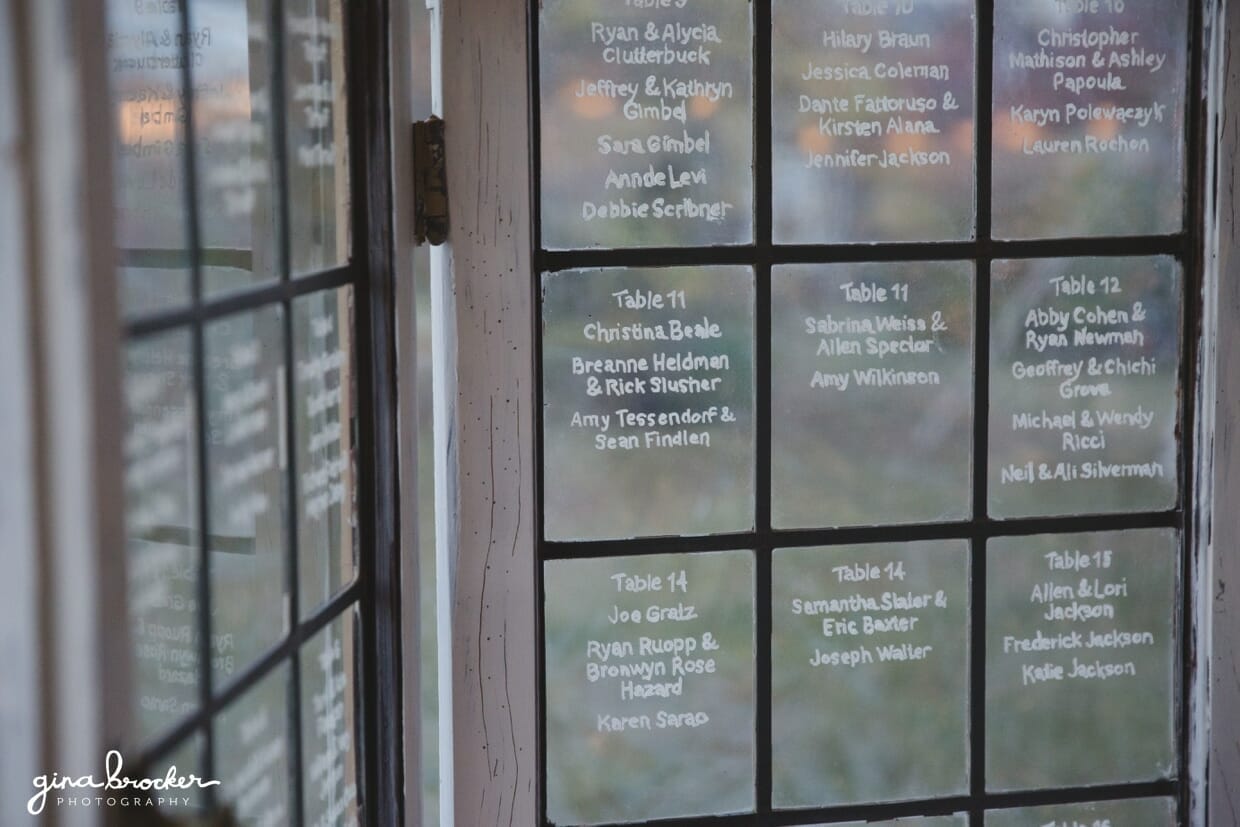 Table 9
Ryan & Alycia
Clutterbuck
Jeffrey & Kathryn
Gimbel
Sara Gimbel
Anne Levi
Debbie Scribner
Table 10
Hilary Braun
Jessica Coleman
Dante Fattoruso &
Kirsten Alana
Jennifer Jackson
Table 10
Christopher
Mathison & Ashley
Papoula
Karyn Polewaczyk
Lauren Rochon
Table 11
Christina Beale
Breanne Heldman
& Rick Slusher
Amy Tessendorf &
Sean Findlen
Table 11
Sabrina Weiss &
Allen Spector
Amy Wilkinson
Table 12
Abby Cohen &
Ryan Newman
Geoffrey & Chichi
Grove
Michael & Wendy
Ricci
Neil & Ali Silverman
Table 14
Joe Gratz
Ryan Ruopp &
Bronwyn Rose
Hazard
Karen Sarao
Table 14
Samantha Slater &
Eric Baxter
Joseph Walter
Table 15
Allen & Lori
Jackson
Frederick Jackson
Katie Jackson
gina brocker
PHOTOGRAPHY